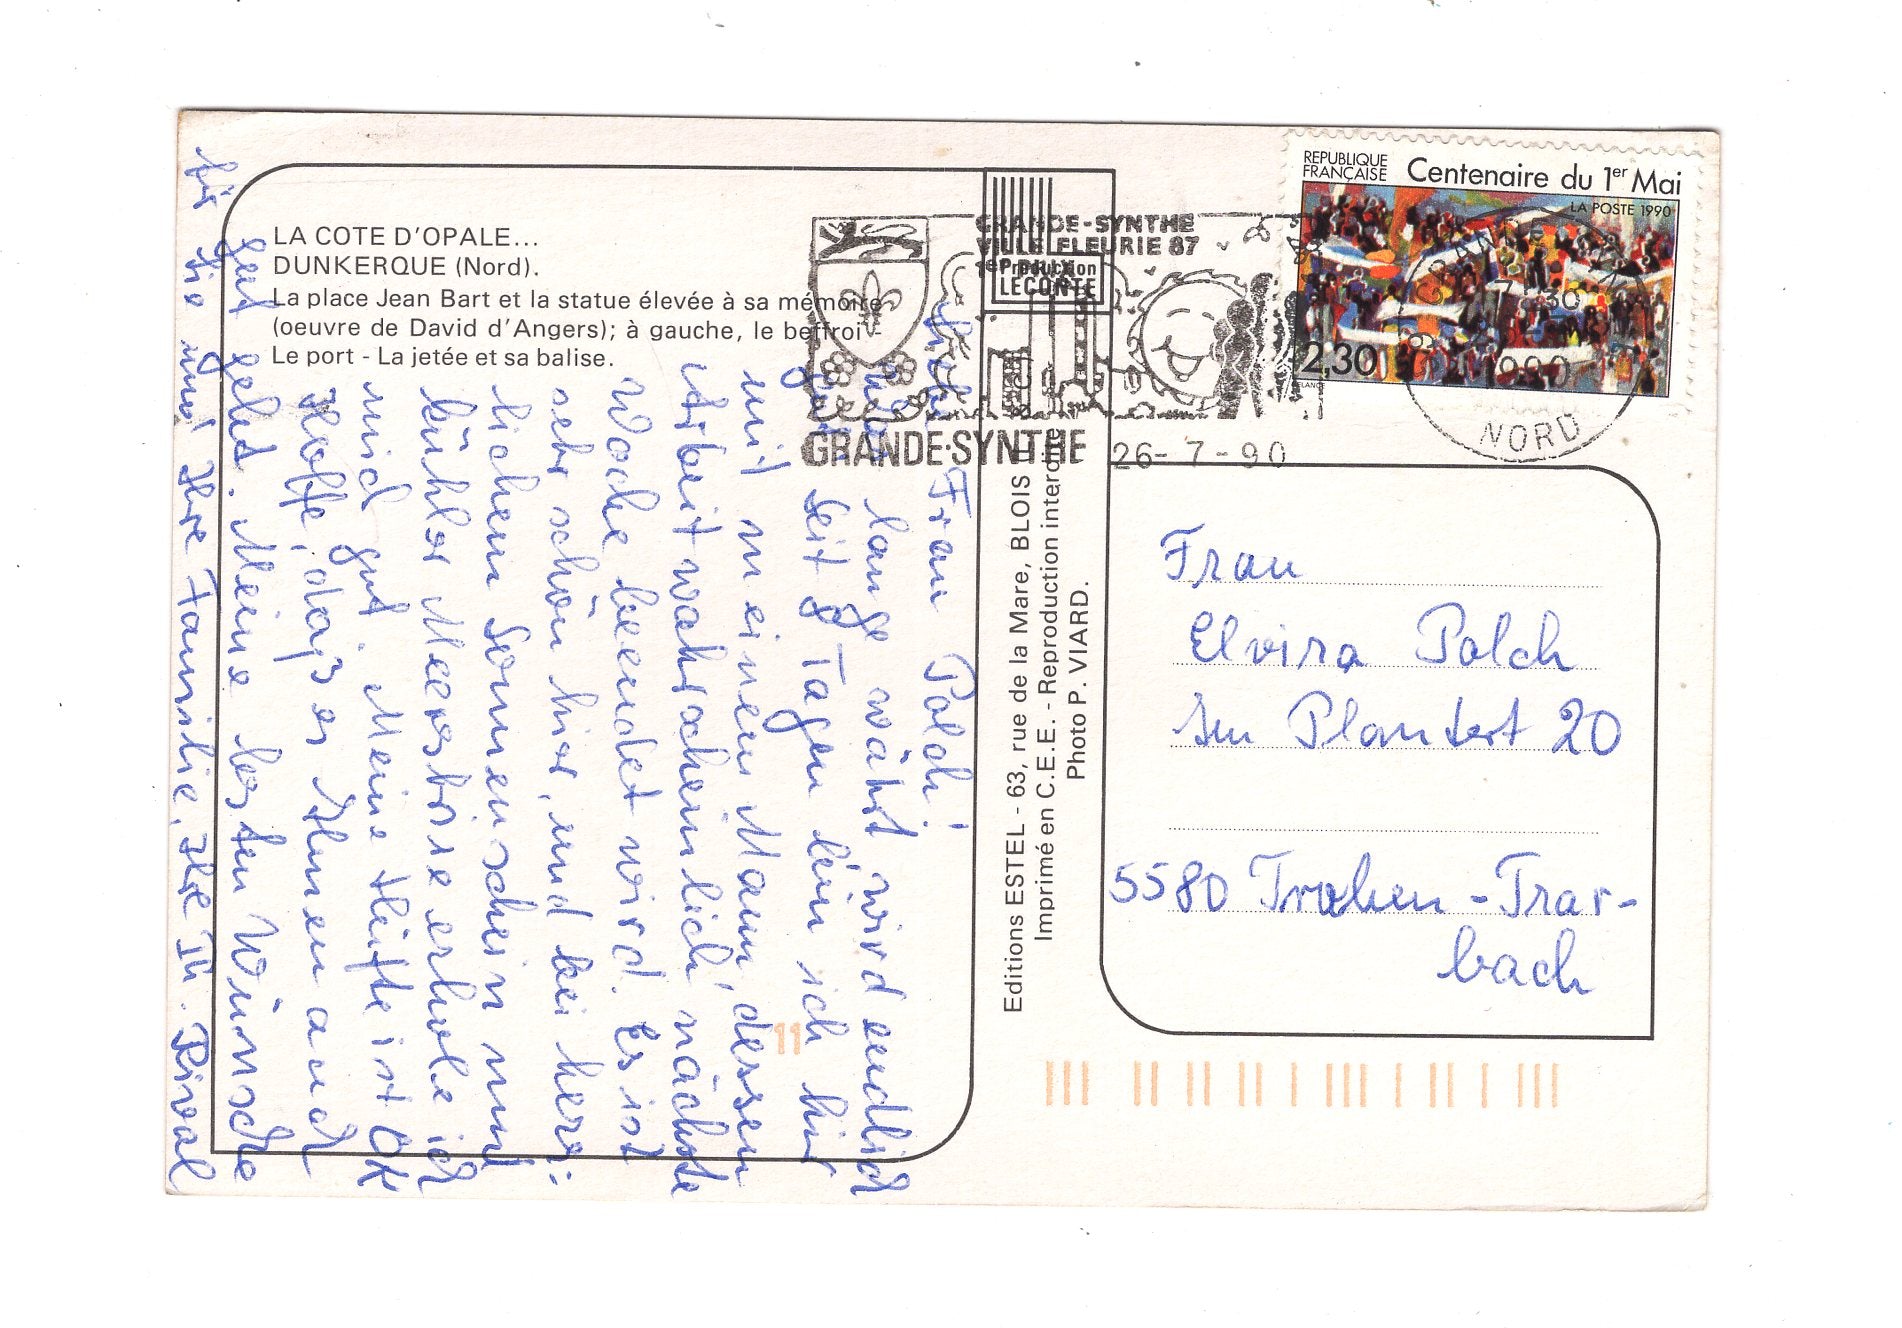 LA COTE D'OPALE...
DUNKERQUE (Nord).
La place Jean Bart et la statue élevée à sa mémoire
(oeuvre de David d'Angers); à gauche, le beffroi
Le port - La jetée et sa balise.
Liebe Frau Polch!
lange währt, wird endlich
gut. Seit 8 Tagen bin ich hier
mit meinem Mann, dessen
Arbeit wahrscheinlich nächste
Woche beendet wird. Es ist
sehr schön hier, und bei herr-
lichem Sonnenschein und
kühler Meeresbrise erhole ich
mich gut. Meine Hüfte ist OK
Hoffe, dass es Ihnen auch
gut geht. Meine besten Wünsche
für Sie und Ihre Familie, Ihre Th. Rival
GRANDE-SYNTHE
VILLE FLEURIE 87
1er PRIX
Production
LECONTE
GRANDE-SYNTHE
26-7-90
Editions ESTEL - 63, rue de la Mare, BLOIS
Imprimé en C.E.E. - Reproduction interdite
Photo P. VIARD.
11
REPUBLIQUE
FRANÇAISE
Centenaire du 1er Mai
LA POSTE 1990
2,30
1990
NORD
Frau
Elvira Polch
Im Plantert 20
5580 Traben-Trar-
bach